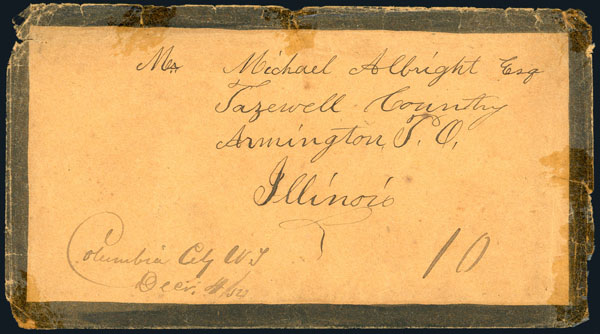 Mr. Michael Albright Esq
Tazewell Country
Armington P. O.
Illinois
10
Columbia City W.T
Decr.